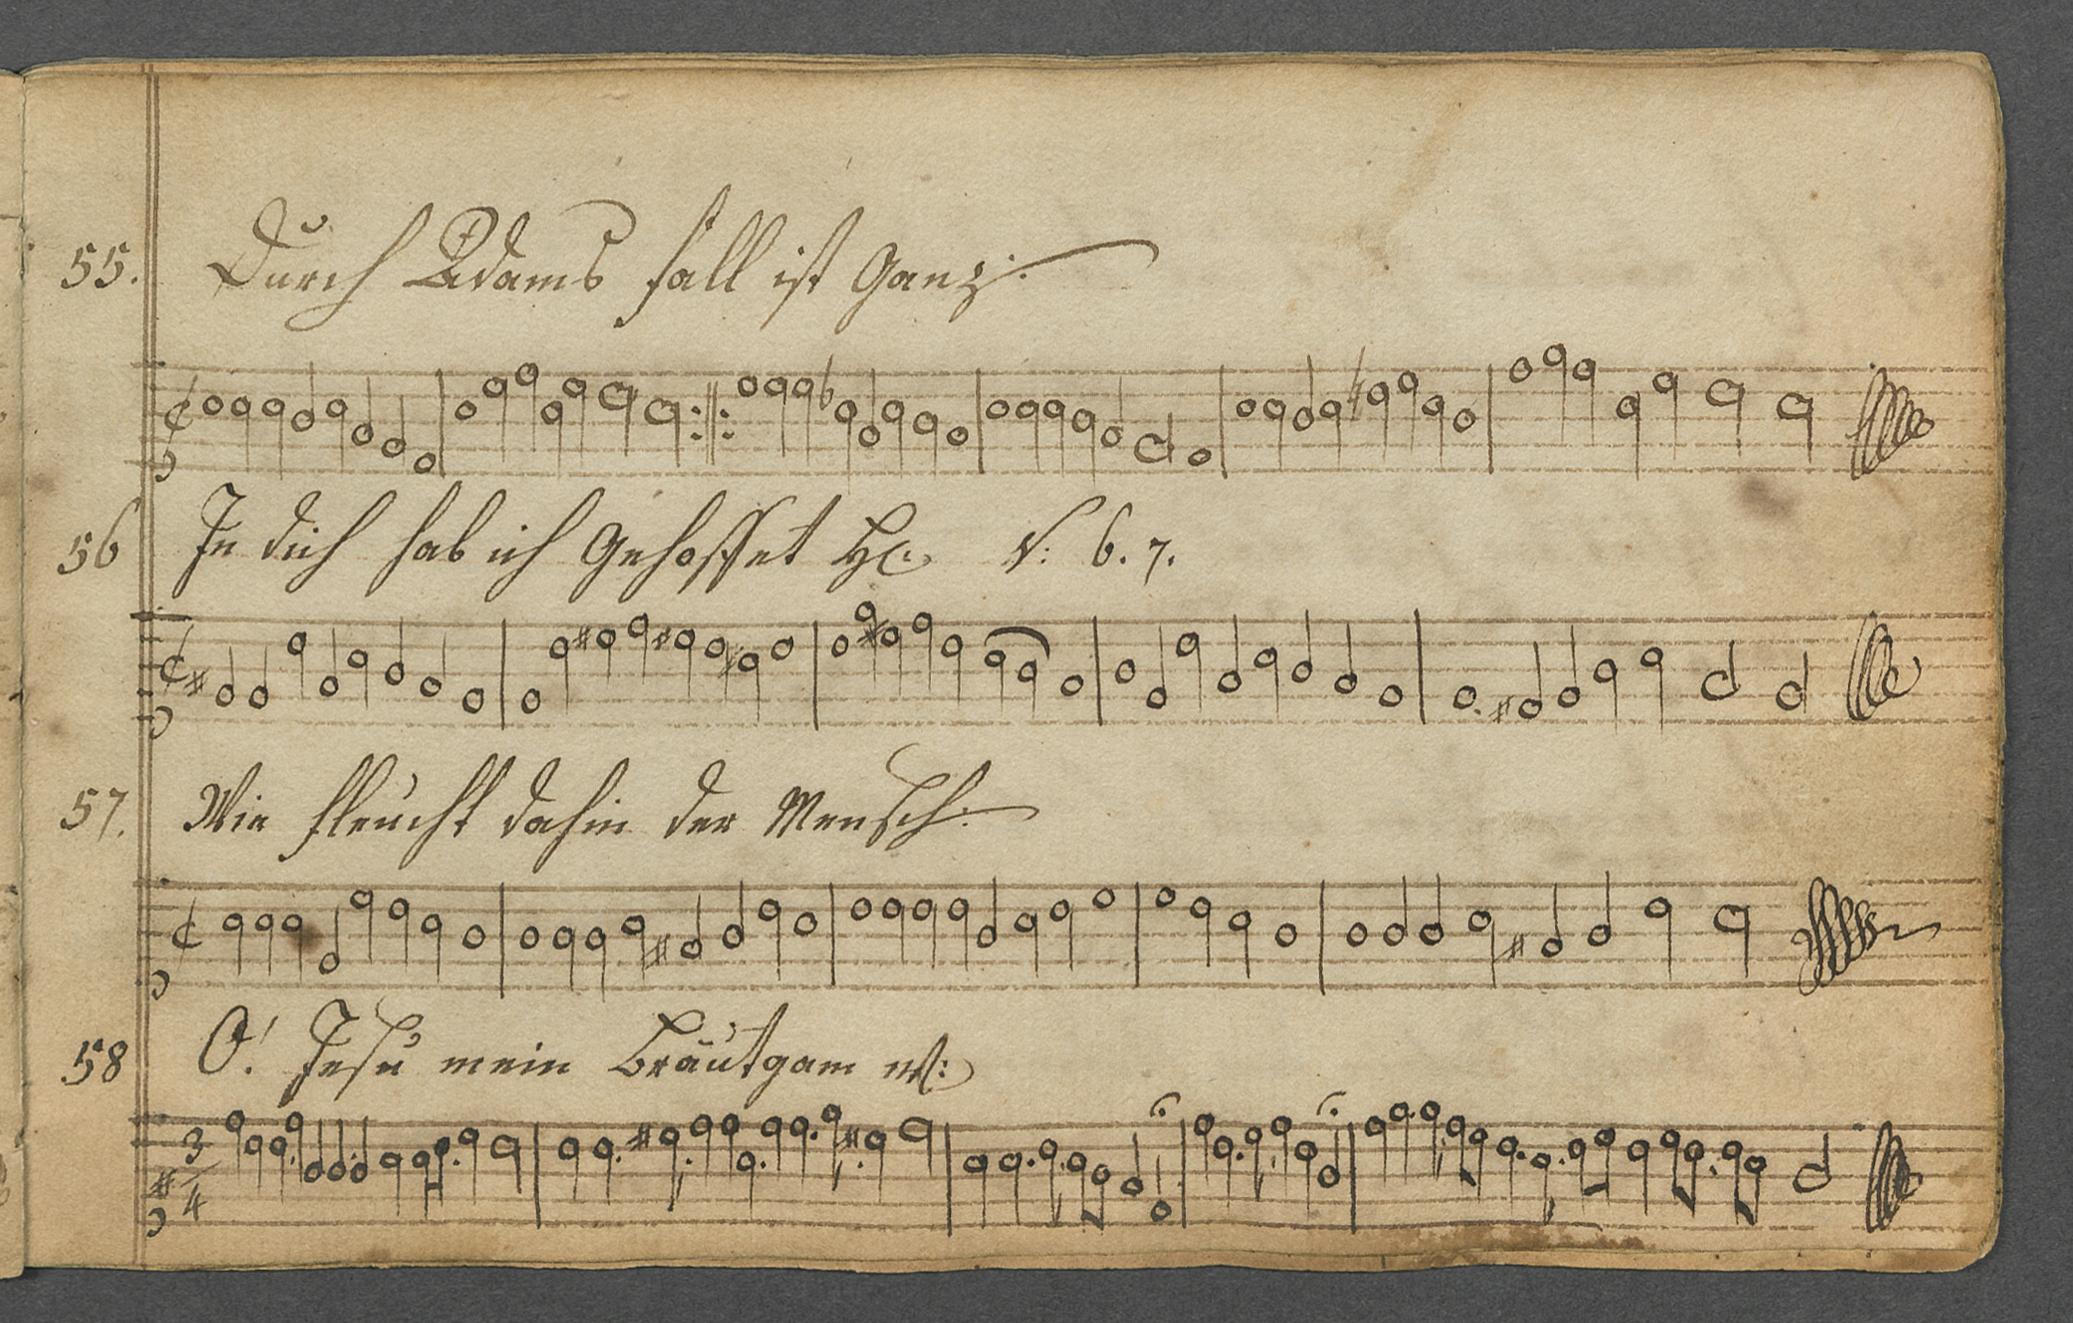 55. Durch Adams fall ist Ganz:
56 In dich hab ich Gehoffet V: 6. 7.
57. Wie fleucht dahin der Mensch:
58 O! Jesu mein Bräutgam
3
4